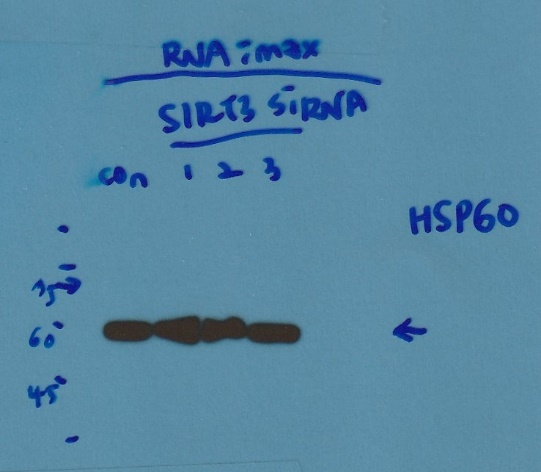 RNAimax
SIRT3 siRNA
con 1 2 3
HSP60
75
60
45